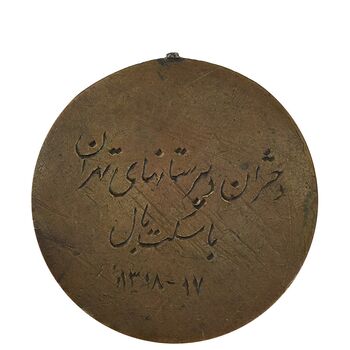 دختران دبیرستانهای تهران
باسکت بال
۱۳۱۸-۱۷